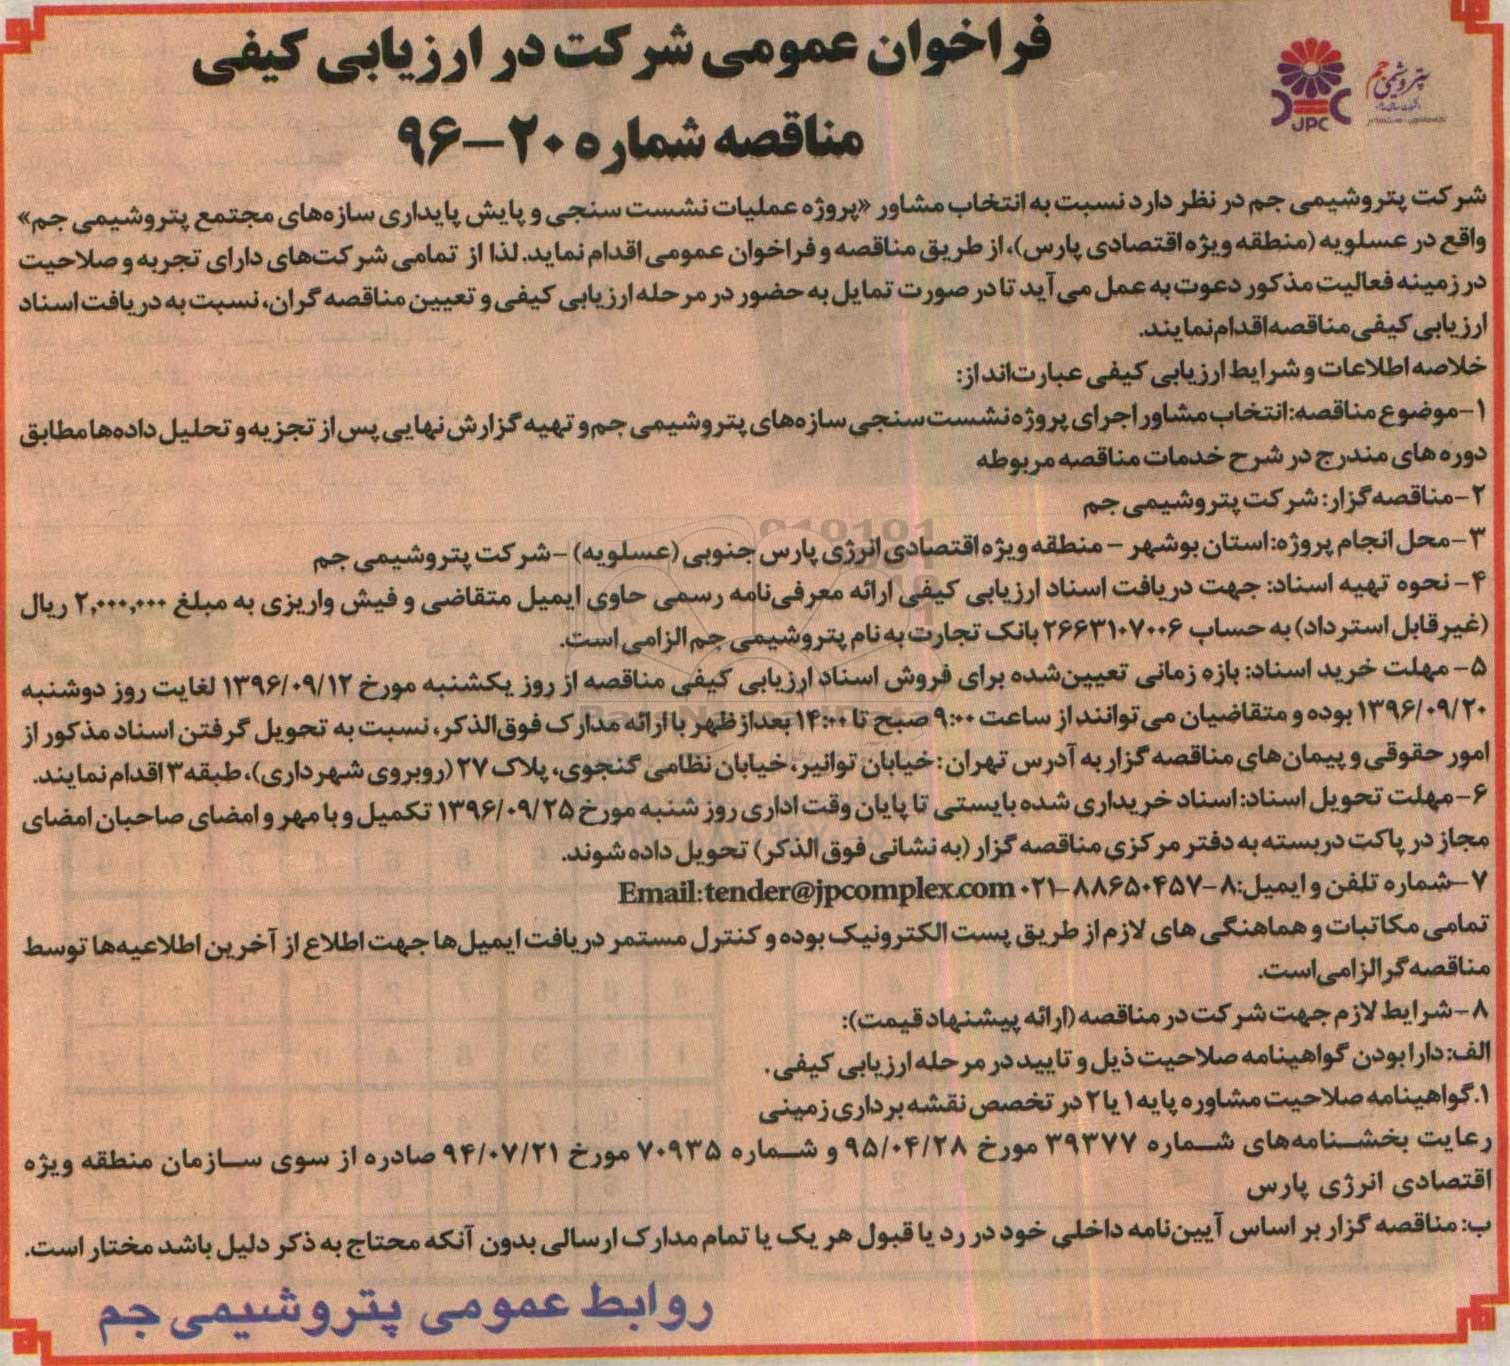 فراخوان عمومی شرکت در ارزیابی کیفی
مناقصه شماره ۲۰-۹۶
پتروشیمی جم
JPC
شرکت پتروشیمی جم در نظر دارد نسبت به انتخاب مشاور «پروژه عملیات نشست سنجی و پایش پایداری سازه‌های مجتمع پتروشیمی جم»
واقع در عسلویه (منطقه ویژه اقتصادی پارس)، از طریق مناقصه و فراخوان عمومی اقدام نماید. لذا از تمامی شرکت‌های دارای تجربه و صلاحیت
در زمینه فعالیت مذکور دعوت به عمل می‌آید تا در صورت تمایل به حضور در مرحله ارزیابی کیفی و تعیین مناقصه گران، نسبت به دریافت اسناد
ارزیابی کیفی مناقصه اقدام نمایند.
خلاصه اطلاعات و شرایط ارزیابی کیفی عبارت‌اند از:
۱-موضوع مناقصه: انتخاب مشاور اجرای پروژه نشست سنجی سازه‌های پتروشیمی جم و تهیه گزارش نهایی پس از تجزیه و تحلیل داده‌ها مطابق
دوره های مندرج در شرح خدمات مناقصه مربوطه
۲-مناقصه گزار: شرکت پتروشیمی جم
۳-محل انجام پروژه: استان بوشهر - منطقه ویژه اقتصادی انرژی پارس جنوبی (عسلویه) - شرکت پتروشیمی جم
۴- نحوه تهیه اسناد: جهت دریافت اسناد ارزیابی کیفی ارائه معرفی‌نامه رسمی حاوی ایمیل متقاضی و فیش واریزی به مبلغ ۲,۰۰۰,۰۰۰ ریال
(غیرقابل استرداد) به حساب ۲۶۶۳۱۰۷۰۰۶ بانک تجارت به نام پتروشیمی جم الزامی است.
۵- مهلت خرید اسناد: بازه زمانی تعیین‌شده برای فروش اسناد ارزیابی کیفی مناقصه از روز یکشنبه مورخ ۱۳۹۶/۰۹/۱۲ لغایت روز دوشنبه
۱۳۹۶/۰۹/۲۰ بوده و متقاضیان می‌توانند از ساعت ۹:۰۰ صبح تا ۱۴:۰۰ بعدازظهر با ارائه مدارک فوق‌الذکر، نسبت به تحویل گرفتن اسناد مذکور از
امور حقوقی و پیمان‌های مناقصه گزار به آدرس تهران: خیابان توانیر، خیابان نظامی گنجوی، پلاک ۲۷ (روبروی شهرداری)، طبقه ۳ اقدام نمایند.
۶- مهلت تحویل اسناد: اسناد خریداری شده بایستی تا پایان وقت اداری روز شنبه مورخ ۱۳۹۶/۰۹/۲۵ تکمیل و با مهر و امضای صاحبان امضای
مجاز در پاکت دربسته به دفتر مرکزی مناقصه گزار (به نشانی فوق الذکر) تحویل داده شوند.
۷-شماره تلفن و ایمیل: ۸-۸۸۶۵۰۴۵۷-۰۲۱ Email: tender@jpcomplex.com
تمامی مکاتبات و هماهنگی های لازم از طریق پست الکترونیک بوده و کنترل مستمر دریافت ایمیل‌ها جهت اطلاع از آخرین اطلاعیه‌ها توسط
مناقصه‌گر الزامی است.
۸-شرایط لازم جهت شرکت در مناقصه (ارائه پیشنهاد قیمت):
الف: دارا بودن گواهینامه صلاحیت ذیل و تایید در مرحله ارزیابی کیفی.
۱. گواهینامه صلاحیت مشاوره پایه ۱ یا ۲ در تخصص نقشه برداری زمینی
رعایت بخشنامه‌های شماره ۳۹۳۷۷ مورخ ۹۵/۰۴/۲۸ و شماره ۷۰۹۳۵ مورخ ۹۴/۰۷/۲۱ صادره از سوی سازمان منطقه ویژه
اقتصادی انرژی پارس
ب: مناقصه گزار بر اساس آیین‌نامه داخلی خود در رد یا قبول هر یک یا تمام مدارک ارسالی بدون آنکه محتاج به ذکر دلیل باشد مختار است.
روابط عمومی پتروشیمی جم